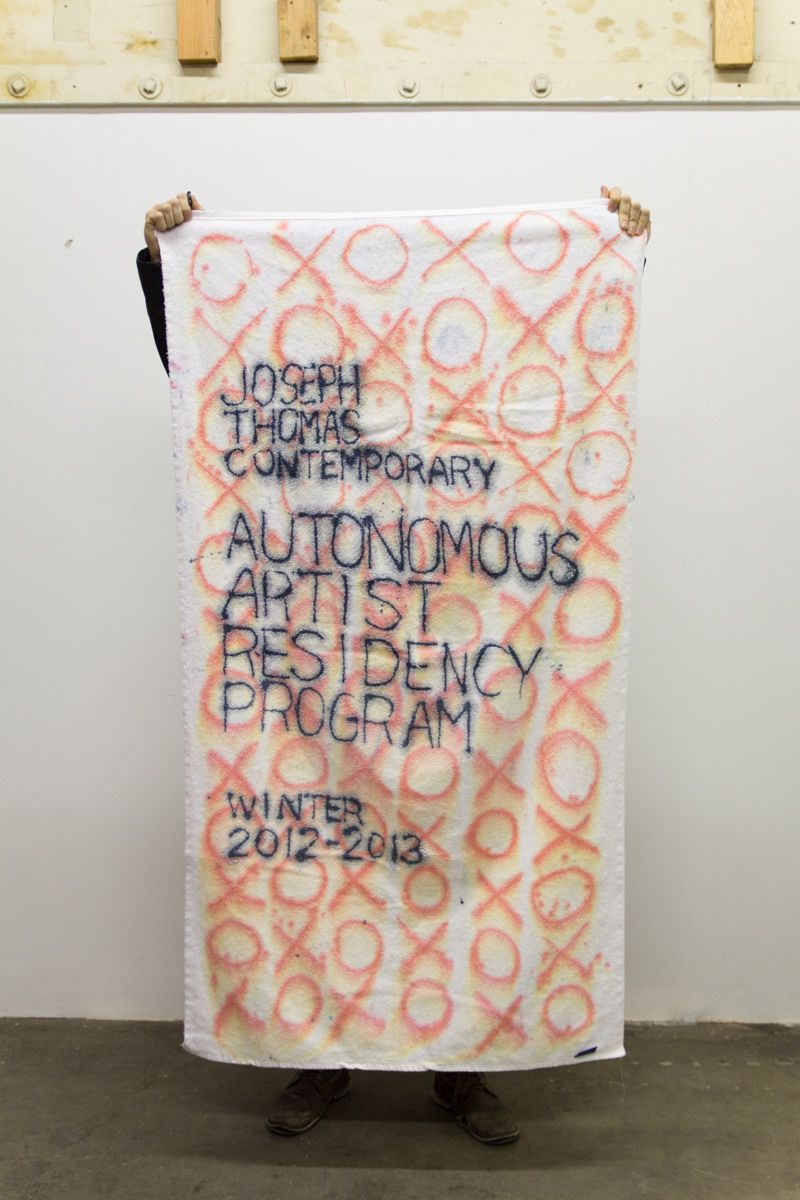 JOSEPH
THOMAS
CONTEMPORARY
AUTONOMOUS
ARTIST
RESIDENCY
PROGRAM
WINTER
2012-2013